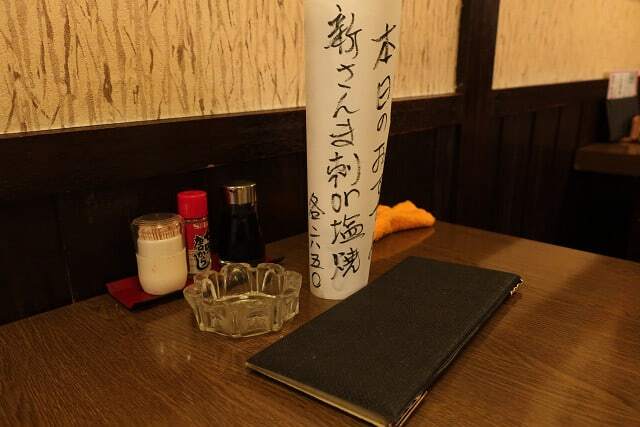 本日のおすすめ
新さんま刺or塩焼
各六五〇